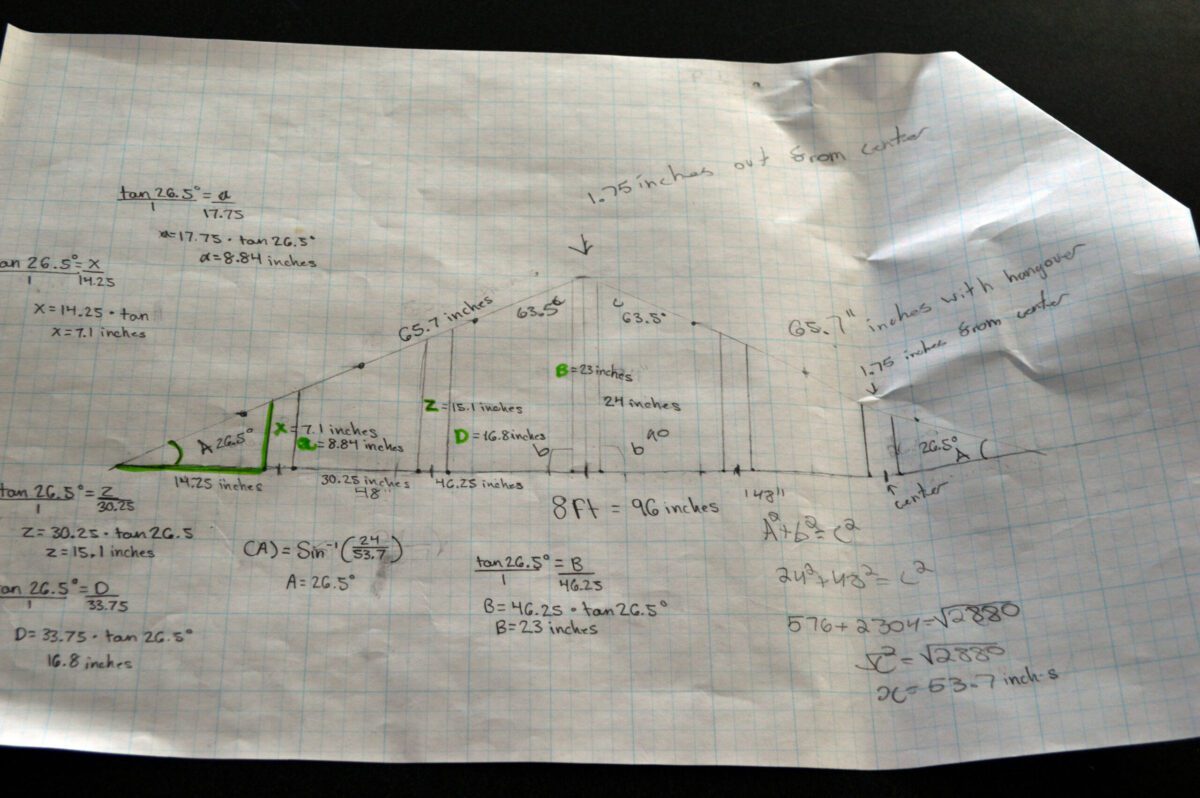 1.75 inches out from center
tan 26.5° = a
1 17.75
a = 17.75 · tan 26.5°
a = 8.84 inches
an 26.5° = X
1 14.25
X = 14.25 · tan
X = 7.1 inches
65.7 inches
63.5°
c
63.5°
65.7" inches with hangover
1.75 inches from center
B = 23 inches
24 inches
Z = 15.1 inches
D = 16.8 inches
X = 7.1 inches
a = 8.84 inches
A 26.5°
b
b 90
26.5°
A
14.25 inches
30.25 inches
48"
46.25 inches
8 Ft = 96 inches
48"
center
tan 26.5° = Z
1 30.25
Z = 30.25 · tan 26.5
Z = 15.1 inches
an 26.5° = D
1 33.75
D = 33.75 · tan 26.5°
16.8 inches
(A) = Sin⁻¹ (24/53.7)
A = 26.5°
tan 26.5° = B
1 46.25
B = 46.25 · tan 26.5°
B = 23 inches
A² + b² = c²
24² + 48² = c²
576 + 2304 = √2880
√c² = √2880
x = 53.7 inches